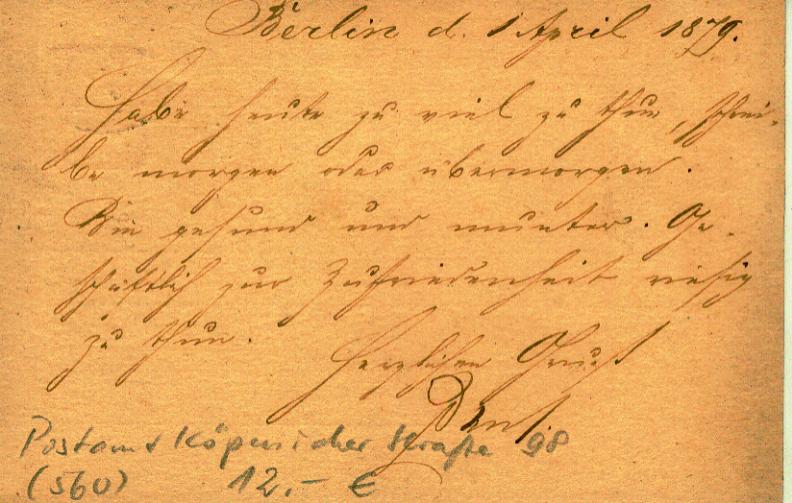 Berlin d. 1 April 1879.
Habe heute zu viel zu thun, schrei-
be morgen oder übermorgen.
Bin gesund und munter. Ge-
schäftlich zur Zufriedenheit riesig
zu thun.
Herzlichen Gruß
Postamt Köpenicker Straße 98
(560) 12.- €